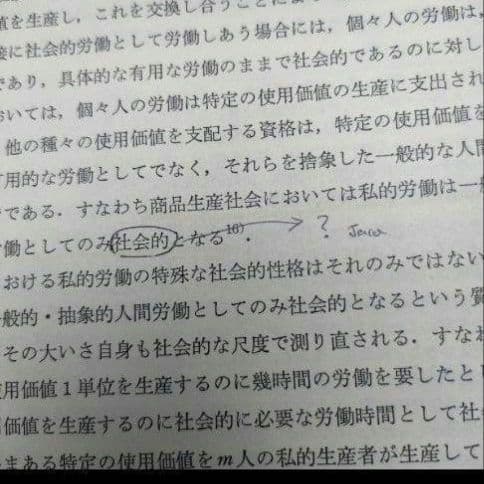 値を生産し，これを交換し合うことによ
接に社会的労働として労働しあう場合には，個々人の労働は，
であり，具体的な有用な労働のままで社会的であるのに対し
おいては，個々人の労働は特定の使用価値の生産に支出され
，他の種々の使用価値を支配する資格は，特定の使用価値を
有用的な労働としてでなく，それらを捨象した一般的な人間
である．すなわち商品生産社会においては私的労働は一般
労働としてのみ社会的となる16)． ?
おける私的労働の特殊な社会的性格はそれのみではない
一般的・抽象的人間労働としてのみ社会的となるという質
その大いさ自身も社会的な尺度で測り直される．すなわ
使用価値1単位を生産するのに幾時間の労働を要したと
価値を生産するのに社会的に必要な労働時間として社
まある特定の使用価値をm人の私的生産者が生産して